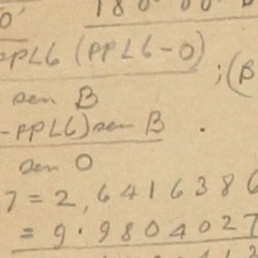 0' 180° 00' 0
PPL6 (PPL6-0) ; (B
sen B
-PPL6) sen B .
sen O
7 = 2,6416386
= 9.9804027